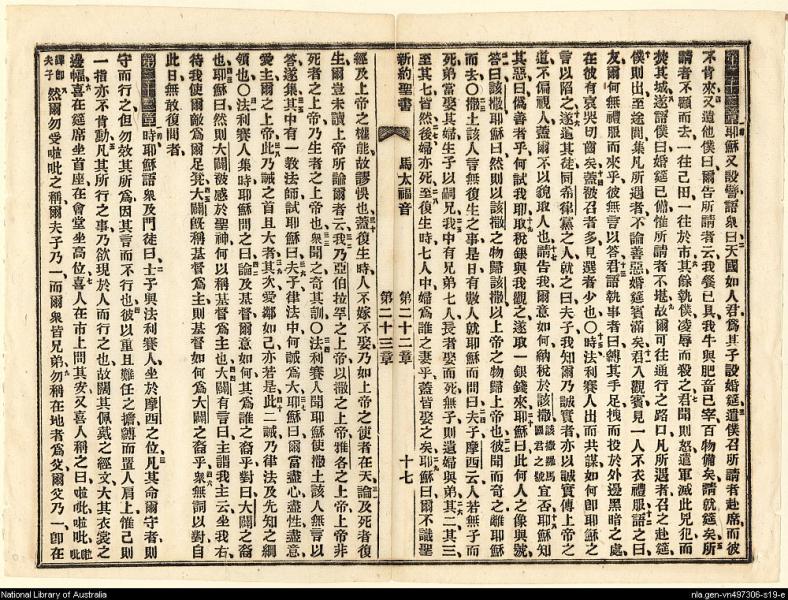 第二十二章耶穌又設譬語衆曰天國如人君爲其子設婚筵遣僕召所請者赴席而彼
不肯來又遣他僕曰爾告所請者云我餐已具我牛與肥畜已宰百物備矣請就筵矣所
請者不顧而去一往己田一往於市其餘執僕凌辱而殺之君聞則怒遣軍滅此兇犯而
焚其城遂謂僕曰婚筵已備惟所請者不堪故爾可往通行之路口凡所遇者召之赴筵
僕則出至途間集凡所遇者不論善惡婚筵賓滿矣君入觀賓見一人不衣禮服語之曰
友爾何無禮服而來乎彼無言以答君語執事者曰縛其手足拽而投於外邊黑暗之處
在彼有哀哭切齒矣蓋被召者多見選者少也○時法利賽人出而共謀如何卽耶穌之
言以陷之遂遣其徒同希律黨之人就之曰夫子我知爾乃誠實者亦以誠實傳上帝之
道不偏視人蓋爾不以貌取人也請告我爾意如何納稅於該撒該撒羅馬國君之號宜否耶穌知
其惡曰僞善者乎何試我耶取稅銀與我觀之遂取一銀錢來耶穌曰此何人之像與號
答曰該撒耶穌曰然則以該撒之物歸該撒以上帝之物歸上帝也彼聞而奇之離耶穌
而去○撒土該人言無復生之事是日有數人就耶穌而問曰夫子摩西云人若無子而
死弟當娶其婦生子以嗣兄我中有兄弟七人長者娶而死無子則遺婦與弟其二其三
至其七皆然後婦亦死至復生時七人中婦爲誰之妻乎蓋皆娶之矣耶穌曰爾不識聖
新約聖書 馬太福音 第二十二章 第二十三章 十七
經及上帝之權能故謬悞也蓋復生時人不嫁不娶乃如上帝之使者在天論及死者復
生爾豈未讀上帝所諭爾者云我乃亞伯拉罕之上帝以撒之上帝雅各之上帝上帝非
死者之上帝乃生者之上帝也衆聞之奇其訓○法利賽人聞耶穌使撒土該人無言以
答遂集其中有一教法師試耶穌曰夫子律法中何誡爲大耶穌曰爾當盡心盡性盡意
愛主爾之上帝此乃誡之首且大者其次愛鄰如己亦若是此二誡乃律法及先知之綱
領也○法利賽人集時耶穌問之曰論及基督爾意如何其爲誰之裔乎對曰大闢之裔
也耶穌曰然則大闢被感於聖神何以稱基督爲主也大闢有言曰主謂我主云坐我右
待我使爾敵爲爾足凳大闢旣稱基督爲主則基督如何爲大闢之裔乎衆無詞以對自
此日無敢復問者
第二十三章時耶穌語衆及門徒曰士子與法利賽人坐於摩西之位凡其命爾守者則
守而行之但勿效其所爲因其言而不行也彼以重且難任之擔縛而置人肩上惟己則
一指亦不肯動凡其所行之事乃欲現於人而行之也故闊其佩戴之經文大其衣裳之
邊幅喜在筵席坐首座在會堂坐高位喜人在市上問其安又喜人稱之曰啦吡啦吡啦吡
譯卽夫子然爾勿受啦吡之稱爾夫子乃一而爾衆皆兄弟勿稱在地者爲父爾父乃一卽在
National Library of Australia
nla.gen-vn497306-s19-e